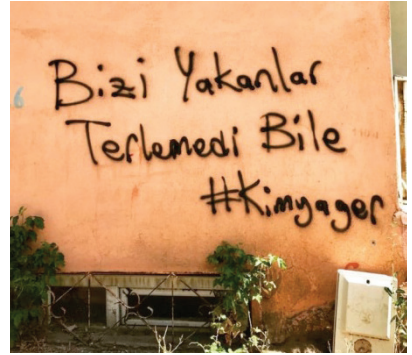 Bizi Yakanlar
Terlemedi Bile
#Kimyager
6